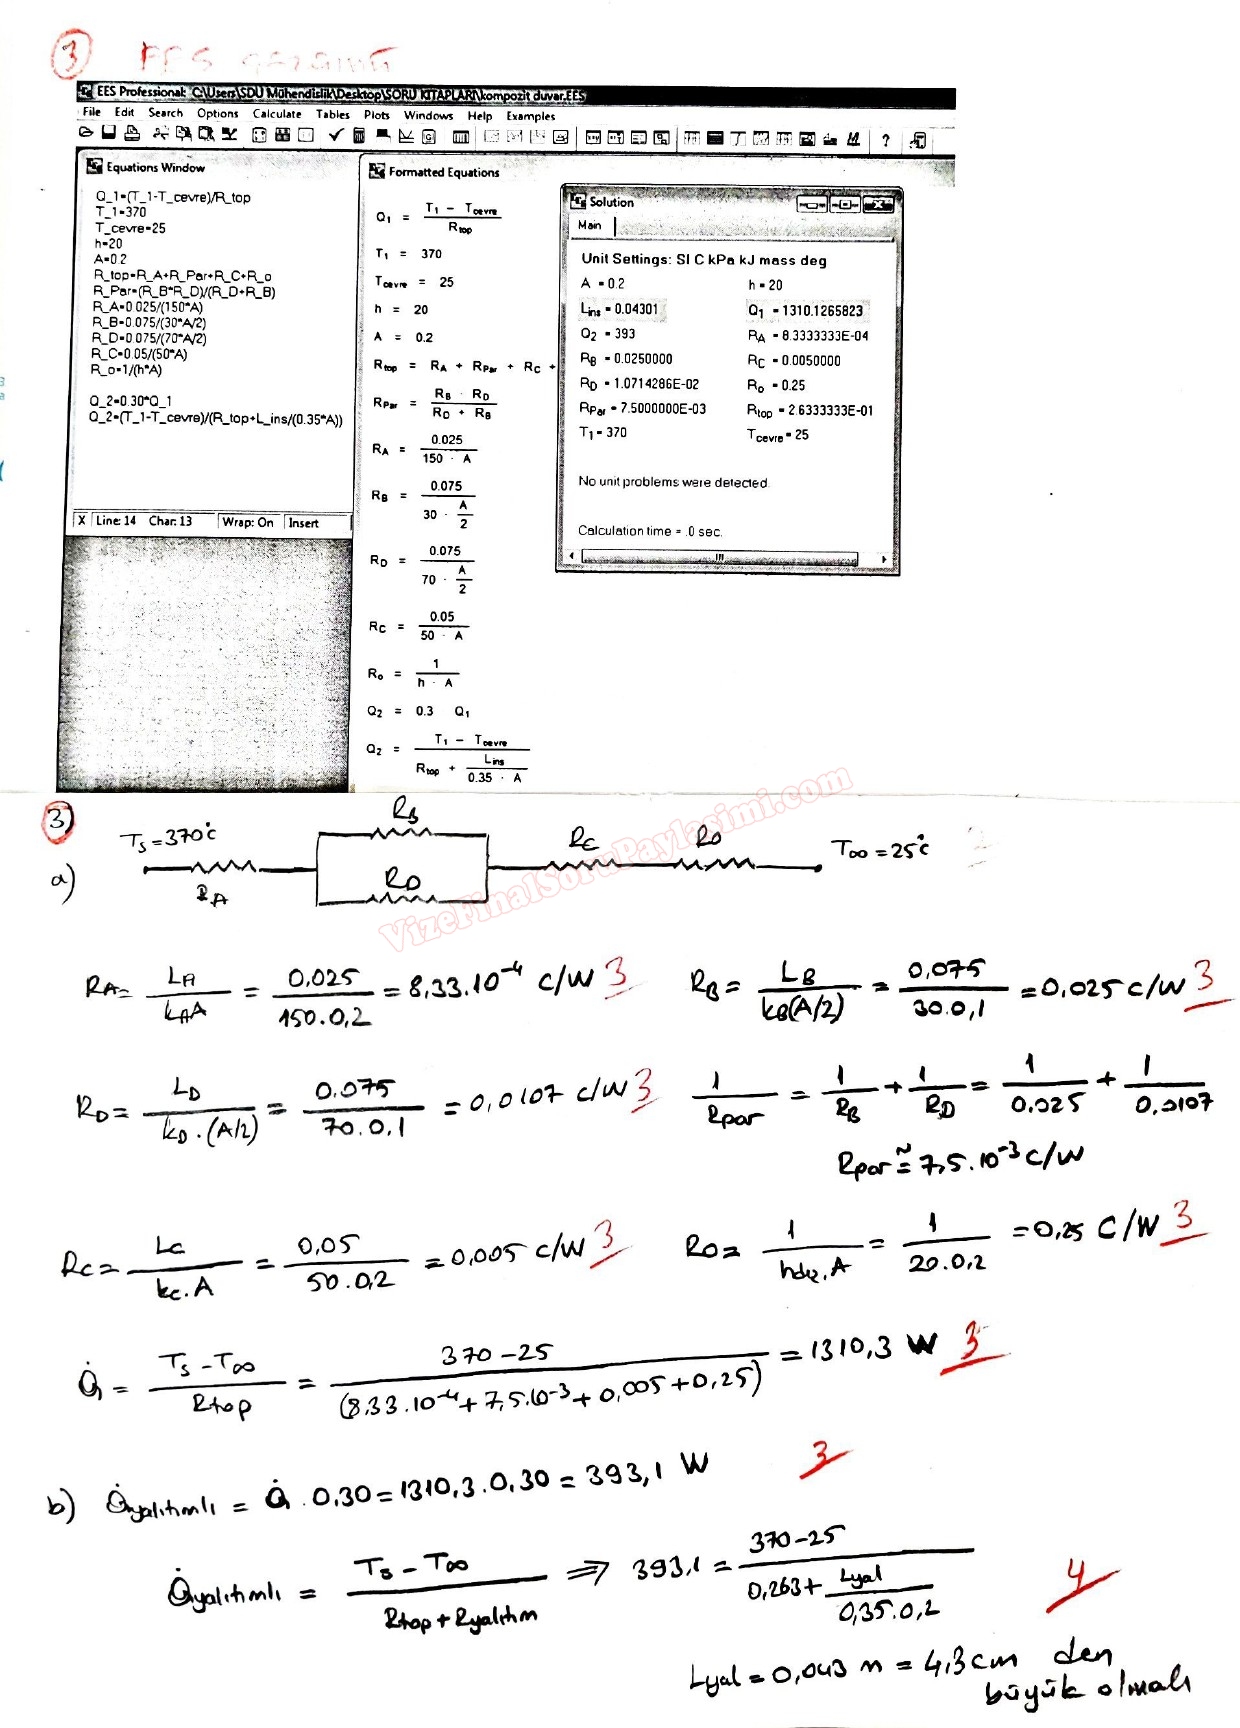 3 EES ÇÖZÜMÜ
EES Professional: C:\Users\SDU Mühendislik\Desktop\SORU KITAPLARI\kompozit duvar.EES
File Edit Search Options Calculate Tables Plots Windows Help Examples
Equations Window
Q_1=(T_1-T_cevre)/R_top
T_1=370
T_cevre=25
h=20
A=0.2
R_top=R_A+R_Par+R_C+R_o
R_Par=(R_B*R_D)/(R_D+R_B)
R_A=0.025/(150*A)
R_B=0.075/(30*A/2)
R_D=0.075/(70*A/2)
R_C=0.05/(50*A)
R_o=1/(h*A)
Q_2=0.30*Q_1
Q_2=(T_1-T_cevre)/(R_top+L_ins/(0.35*A))
X Line: 14 Char: 13 Wrap: On Insert
Formatted Equations
Q1 = (T1 - Tcevre) / Rtop
T1 = 370
Tcevre = 25
h = 20
A = 0.2
Rtop = RA + RPar + RC +
RPar = (RB · RD) / (RD + RB)
RA = 0.025 / (150 · A)
RB = 0.075 / (30 · A/2)
RD = 0.075 / (70 · A/2)
RC = 0.05 / (50 · A)
Ro = 1 / (h · A)
Q2 = 0.3 · Q1
Q2 = (T1 - Tcevre) / (Rtop + Lins / (0.35 · A))
Solution
Main
Unit Settings: SI C kPa kJ mass deg
A = 0.2 h = 20
Lins = 0.04301 Q1 = 1310.1265823
Q2 = 393 RA = 8.3333333E-04
RB = 0.0250000 RC = 0.0050000
RD = 1.0714286E-02 Ro = 0.25
RPar = 7.5000000E-03 Rtop = 2.6333333E-01
T1 = 370 Tcevre = 25
No unit problems were detected.
Calculation time = .0 sec.
VizeFinalSoruPaylasimi.com
3)
a) Ts = 370°C RA RB RD RC RO T∞ = 25°C
RA = LA / (kA A) = 0,025 / (150.0,2) = 8,33.10⁻⁴ C/W 3 RB = LB / (kB(A/2)) = 0,075 / (30.0,1) = 0,025 C/W 3
RD = LD / (kD.(A/2)) = 0.075 / (70.0,1) = 0,0107 C/W 3 1/Rpar = 1/RB + 1/RD = 1/0.025 + 1/0,0107
Rpar ≅ 7,5.10⁻³ C/W
RC = LC / (kC.A) = 0,05 / (50.0,2) = 0,005 C/W 3 RO = 1 / (hdış.A) = 1 / (20.0,2) = 0,25 C/W 3
Q̇ = (Ts - T∞) / Rtop = (370-25) / (8,33.10⁻⁴ + 7,5.10⁻³ + 0,005 + 0,25) = 1310,3 W 3
b) Q̇yalıtımlı = Q̇ . 0,30 = 1310,3 . 0,30 = 393,1 W 3
Q̇yalıtımlı = (Ts - T∞) / (Rtop + Ryalıtım) ⇒ 393,1 = (370-25) / (0,263 + Lyal / (0,35.0,2)) 4
Lyal = 0,043 m = 4,3 cm den
büyük olmalı